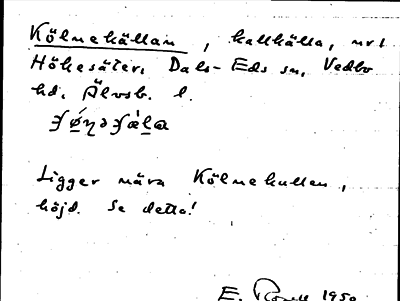 Kölnekällan, kallkälla, nrt
Hökesäter, Dals-Eds sn, Vedbo
hd, Älvsb. l.
Ligger nära Kölnekullen,
höjd. Se detta!
E. 1950